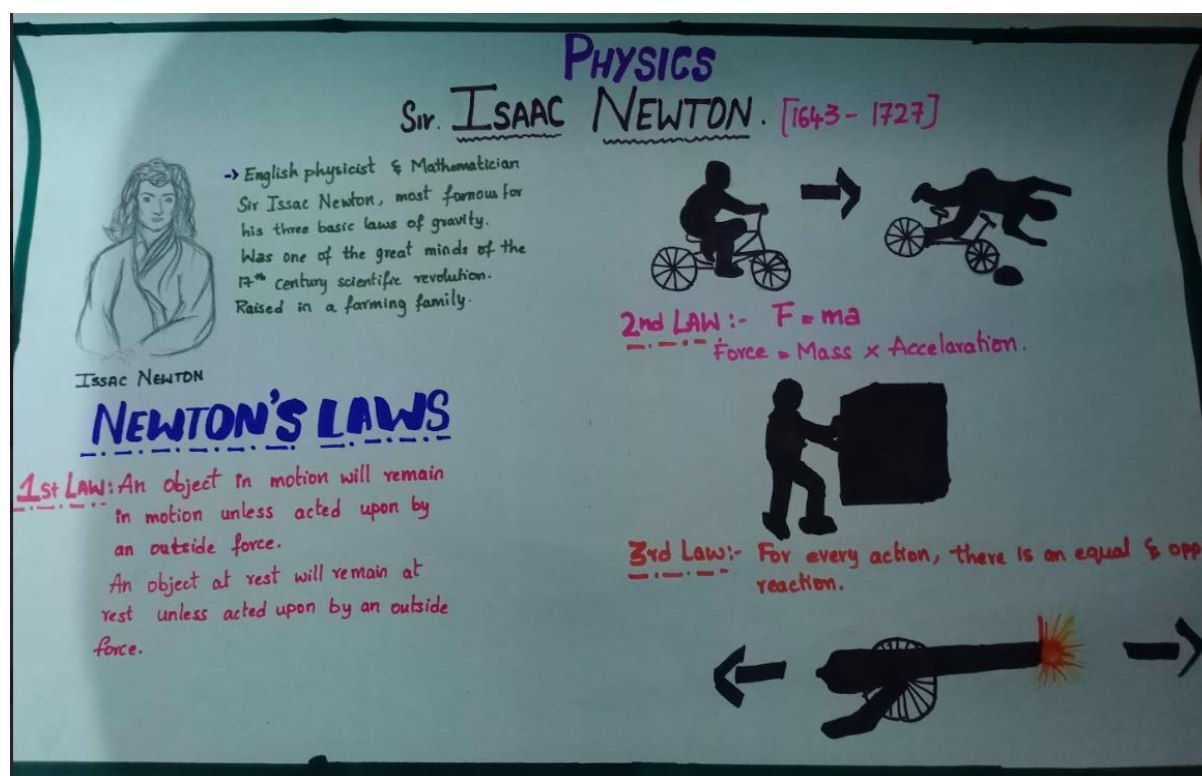 PHYSICS
Sir. ISAAC NEWTON. [1643 - 1727]
→ English physicist & Mathematician
Sir Issac Newton, most famous for
his three basic laws of gravity.
Was one of the great minds of the
17th century scientific revolution.
Raised in a farming family.
ISSAC NEWTON
NEWTON'S LAWS
1st LAW: An object in motion will remain
in motion unless acted upon by
an outside force.
An object at rest will remain at
rest unless acted upon by an outside
force.
2nd LAW :- F = ma
Force = Mass x Accelaration.
3rd Law:- For every action, there is an equal & opp
reaction.